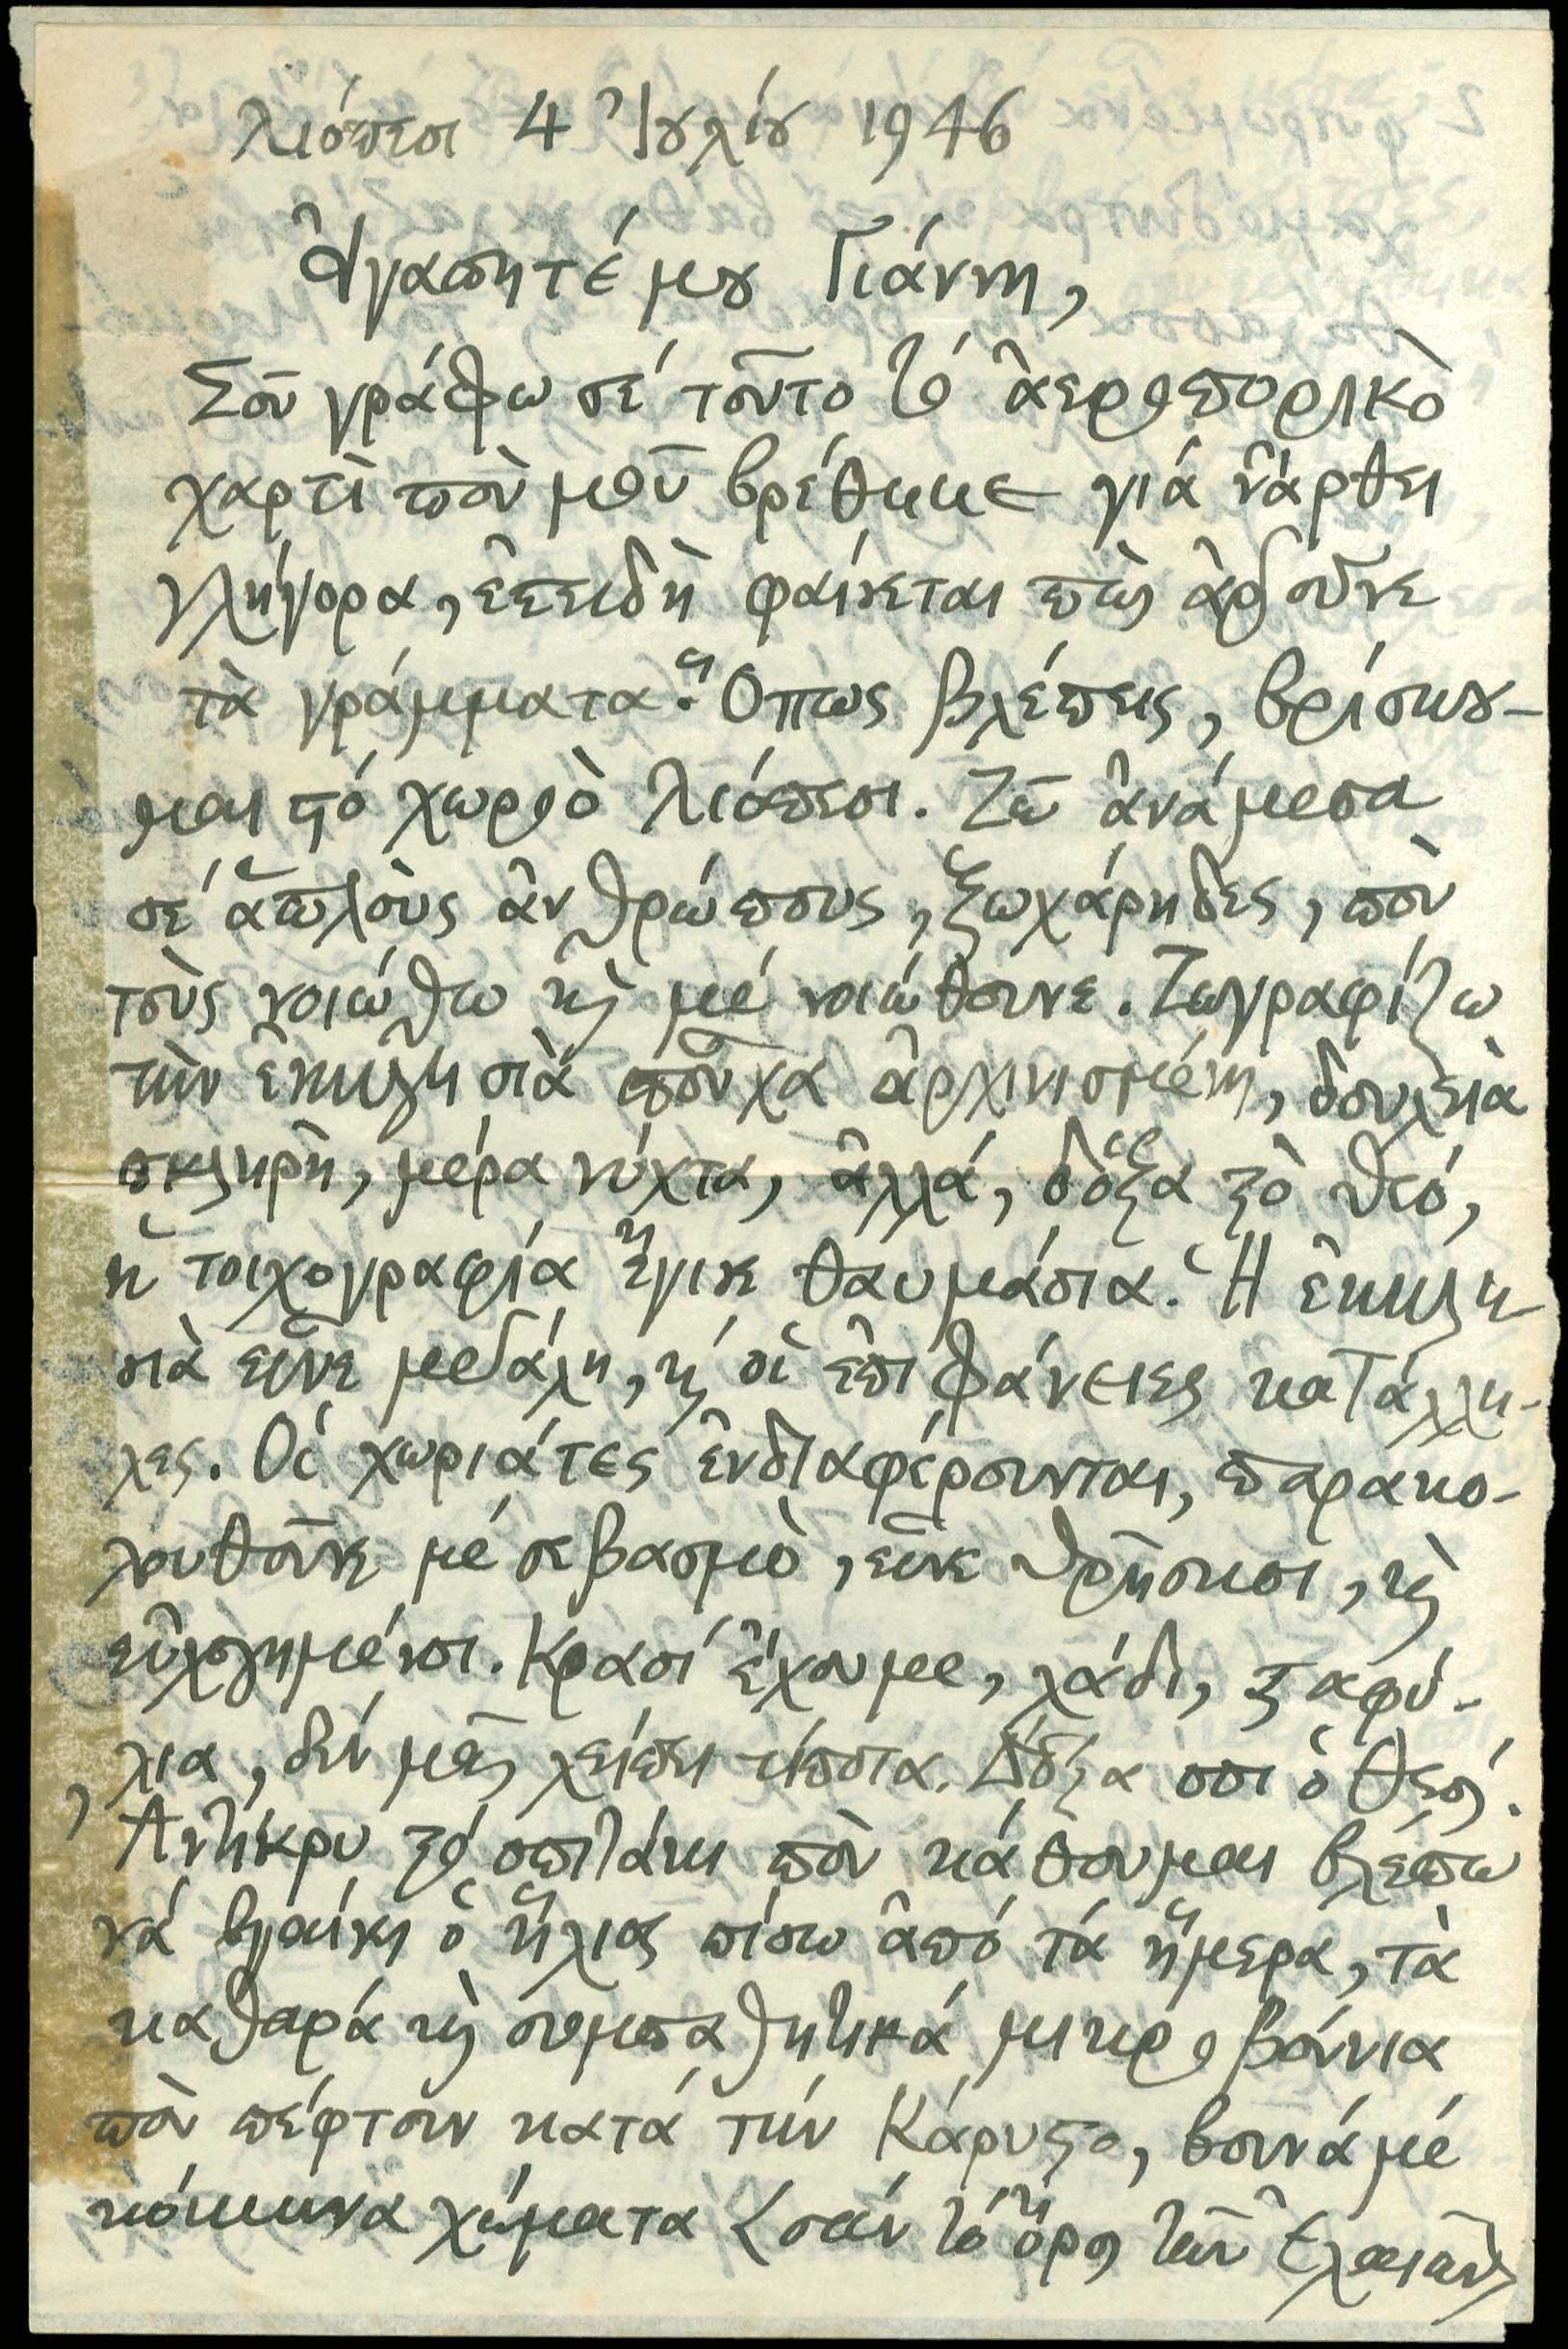 Λιόπεσι 4 Ἰουλίου 1946
Ἀγαπητέ μου Γιάννη,
Σοῦ γράφω σέ τοῦτο τό ἀεροπορικὸ
χαρτὶ ποὺ μοῦ βρέθηκε γιά νἄρθει
γλήγορα, ἐπειδὴ φαίνεται πὼς ἀργοῦνε
τὰ γράμματα. Ὅπως βλέπεις, βρίσκου-
μαι στό χωριὸ Λιόπεσι. Ζῶ ἀνάμεσα
σέ ἁπλοὺς ἀνθρώπους, ξωχάρηδες, ποὺ
τοὺς νοιώθω κὶ μέ νοιώθουνε. Ζωγραφίζω
τὴν ἐκκλησιὰ ποῦχα ἀρχινισμένη, δουλειὰ
σκληρὴ, μέρα νύχτα, ἀλλά, δόξα στὸ Θεό,
ἡ τοιχογραφία ἔγινε θαυμάσια. Ἡ ἐκκλη-
σιὰ εἶνε μεγάλη, κι οἱ ἐπιφάνειες κατάλλη-
λες. Οἱ χωριάτες ἐνδιαφέρουνται, παρακο-
λουθοῦνε μέ σεβασμὸ, εἶνε θρῆσκοι, κὶ
εὐλογημένοι. Κρασί ἔχουμε, λάδι, σταφύ-
λια, δέν μᾶς λείπει τίποτα. Δόξα σοι ὁ Θεός.
Ἀντίκρυ στό σπιτάκι ποὺ κάθουμαι βλέπω
νά βγαίνει ὁ ἥλιος πίσω ἀπό τά ἥμερα, τὰ
καθαρά κὶ συμπαθητικά μικροβούνια
ποὺ πέφτουν κατά τήν Κάρυστο, βουνά μέ
κόκκινα χώματα (σάν τό ὄρος τῶν Ἐλαιῶν)